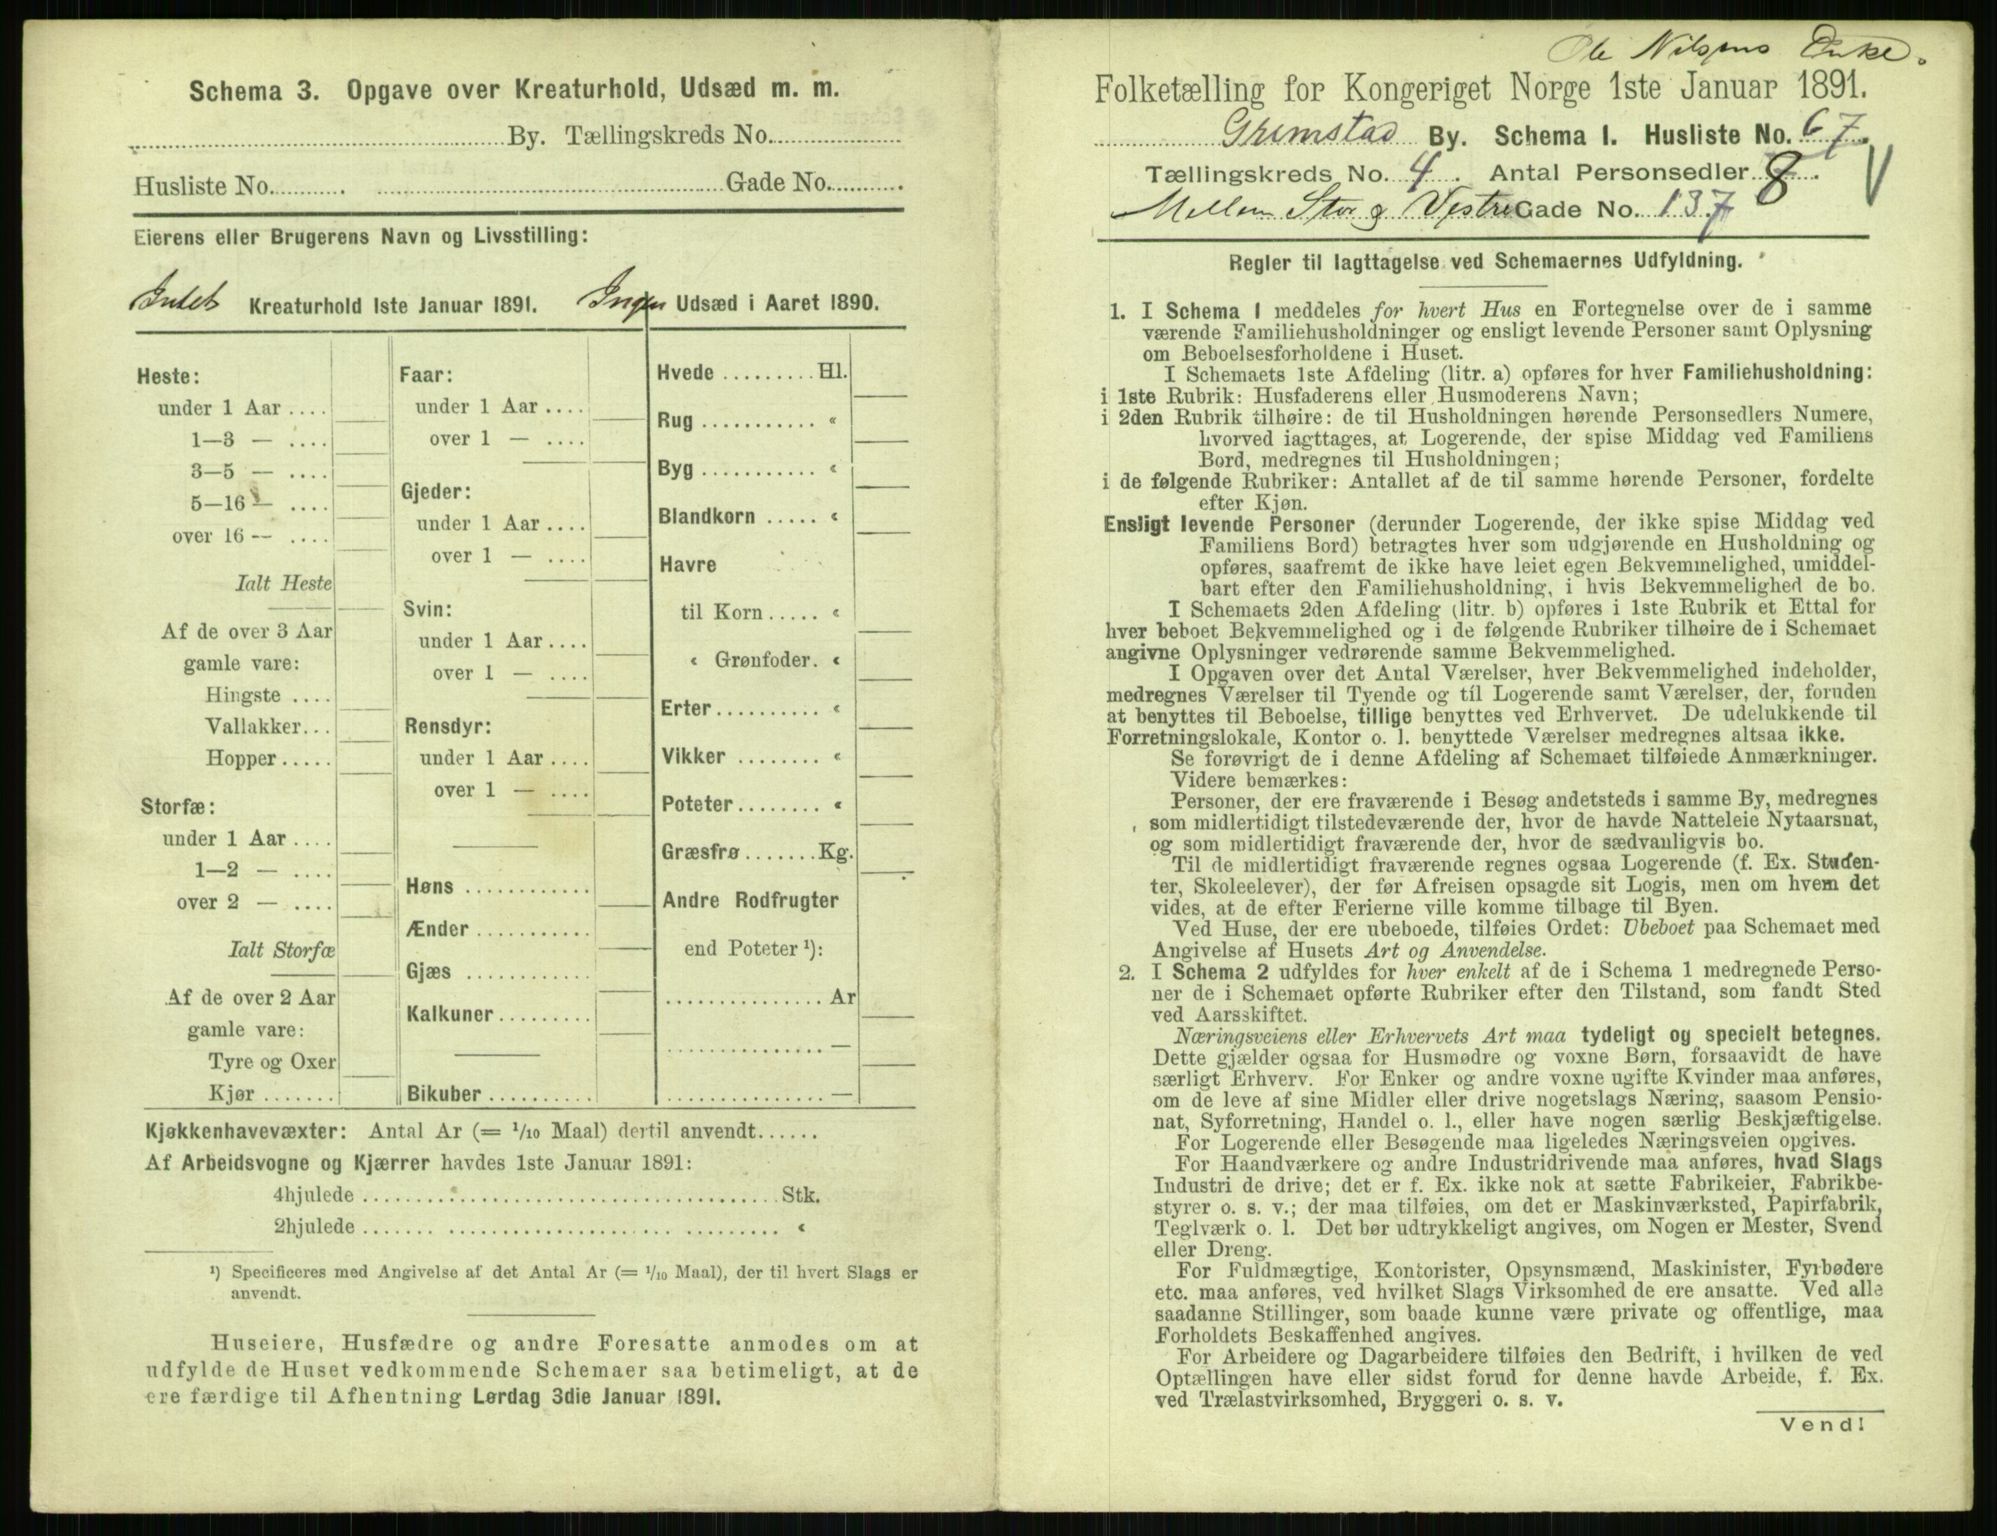 Schema 3. Opgave over Kreaturhold, Udsæd m. m.
By. Tællingskreds No.
Husliste No. Gade No.
Eierens eller Brugerens Navn og Livsstilling:
Intet Kreaturhold 1ste Januar 1891. Ingen Udsæd i Aaret 1890.
Heste:
under 1 Aar ....
1—3 — ....
3—5 — ....
5—16 — ....
over 16 — ....
Ialt Heste
Af de over 3 Aar
gamle vare:
Hingste ....
Vallakker...
Hopper.....
Storfæ:
under 1 Aar ....
1—2 — ....
over 2 — ....
Ialt Storfæ
Af de over 2 Aar
gamle vare:
Tyre og Oxer
Kjør .......
Faar:
under 1 Aar ....
over 1 — ....
Gjeder:
under 1 Aar ....
over 1 — ....
Svin:
under 1 Aar ....
over 1 — ....
Rensdyr:
under 1 Aar ....
over 1 — ....
Høns ............
Ænder ...........
Gjæs ............
Kalkuner.........
Bikuber ..........
Hvede ......... Hl.
Rug ........... «
Byg ........... «
Blandkorn ..... «
Havre
til Korn ..... «
« Grønfoder. «
Erter.......... «
Vikker ........ «
Poteter........ «
Græsfrø.......Kg.
Andre Rodfrugter
end Poteter ¹):
............... Ar
............... —
............... —
Kjøkkenhavevæxter: Antal Ar (= 1/10 Maal) dertil anvendt......
Af Arbeidsvogne og Kjærrer havdes 1ste Januar 1891:
4hjulede ........................................ Stk.
2hjulede ........................................ «
¹) Specificeres med Angivelse af det Antal Ar (= 1/10 Maal), der til hvert Slags er
anvendt.
Huseiere, Husfædre og andre Foresatte anmodes om at
udfylde de Huset vedkommende Schemaer saa betimeligt, at de
ere færdige til Afhentning Lørdag 3die Januar 1891.
Ole Nilsens Enke.
Folketælling for Kongeriget Norge 1ste Januar 1891.
Grimstad By. Schema I. Husliste No. 67.
Tællingskreds No. 4. Antal Personsedler 8.
Mellem Stor og Vestre Gade No. 137
Regler til Iagttagelse ved Schemaernes Udfyldning.
1. I Schema 1 meddeles for hvert Hus en Fortegnelse over de i samme
værende Familiehusholdninger og ensligt levende Personer samt Oplysning
om Beboelsesforholdene i Huset.
I Schemaets 1ste Afdeling (litr. a) opføres for hver Familiehusholdning:
i 1ste Rubrik: Husfaderens eller Husmoderens Navn;
i 2den Rubrik tilhøire: de til Husholdningen hørende Personsedlers Numere,
hvorved iagttages, at Logerende, der spise Middag ved Familiens
Bord, medregnes til Husholdningen;
i de følgende Rubriker: Antallet af de til samme hørende Personer, fordelte
efter Kjøn.
Ensligt levende Personer (derunder Logerende, der ikke spise Middag ved
Familiens Bord) betragtes hver som udgjørende en Husholdning og
opføres, saafremt de ikke have leiet egen Bekvemmelighed, umiddel-
bart efter den Familiehusholdning, i hvis Bekvemmelighed de bo.
I Schemaets 2den Afdeling (litr. b) opføres i 1ste Rubrik et Ettal for
hver beboet Bekvemmelighed og i de følgende Rubriker tilhøire de i Schemaet
angivne Oplysninger vedrørende samme Bekvemmelighed.
I Opgaven over det Antal Værelser, hver Bekvemmelighed indeholder,
medregnes Værelser til Tyende og til Logerende samt Værelser, der, foruden
at benyttes til Beboelse, tillige benyttes ved Erhvervet. De udelukkende til
Forretningslokale, Kontor o. l. benyttede Værelser medregnes altsaa ikke.
Se forøvrigt de i denne Afdeling af Schemaet tilføiede Anmærkninger.
Videre bemærkes:
Personer, der ere fraværende i Besøg andetsteds i samme By, medregnes
som midlertidigt tilstedeværende der, hvor de havde Natteleie Nytaarsnat,
og som midlertidigt fraværende der, hvor de sædvanligvis bo.
Til de midlertidigt fraværende regnes ogsaa Logerende (f. Ex. Studen-
ter, Skoleelever), der før Afreisen opsagde sit Logis, men om hvem det
vides, at de efter Ferierne ville komme tilbage til Byen.
Ved Huse, der ere ubeboede, tilføies Ordet: Ubeboet paa Schemaet med
Angivelse af Husets Art og Anvendelse.
2. I Schema 2 udfyldes for hver enkelt af de i Schema 1 medregnede Perso-
ner de i Schemaet opførte Rubriker efter den Tilstand, som fandt Sted
ved Aarsskiftet.
Næringsveiens eller Erhvervets Art maa tydeligt og specielt betegnes.
Dette gjælder ogsaa for Husmødre og voxne Børn, forsaavidt de have
særligt Erhverv. For Enker og andre voxne ugifte Kvinder maa anføres,
om de leve af sine Midler eller drive nogetslags Næring, saasom Pensio-
nat, Syforretning, Handel o. l., eller have nogen særlig Beskjæftigelse.
For Logerende eller Besøgende maa ligeledes Næringsveien opgives.
For Haandværkere og andre Industridrivende maa anføres, hvad Slags
Industri de drive; det er f. Ex. ikke nok at sætte Fabrikeier, Fabrikbe-
styrer o. s. v.; der maa tilføies, om det er Maskinværksted, Papirfabrik,
Teglværk o. l. Det bør udtrykkeligt angives, om Nogen er Mester, Svend
eller Dreng.
For Fuldmægtige, Kontorister, Opsynsmænd, Maskinister, Fyrbødere
etc. maa anføres, ved hvilket Slags Virksomhed de ere ansatte. Ved alle
saadanne Stillinger, som baade kunne være private og offentlige, maa
Forholdets Beskaffenhed angives.
For Arbeidere og Dagarbeidere tilføies den Bedrift, i hvilken de ved
Optællingen have eller sidst forud for denne havde Arbeide, f. Ex.
ved Trælastvirksomhed, Bryggeri o. s. v.
Vend!